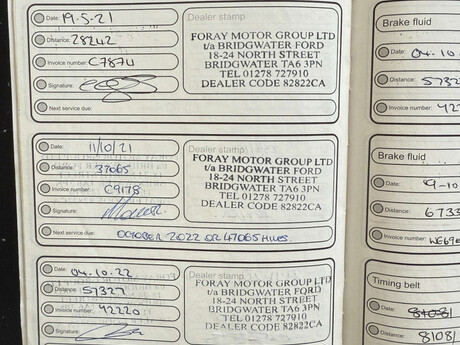 Date: 19.5.21
Distance: 28242
Invoice number: C7874
Signature:
Next service due:
Dealer stamp
FORAY MOTOR GROUP LTD
t/a BRIDGWATER FORD
18-24 NORTH STREET
BRIDGWATER TA6 3PN
TEL 01278 727910
DEALER CODE 82822CA
Date: 11/10/21
Distance: 37065
Invoice number: C9178
Signature:
Next service due: OCTOBER 2022 OR 47065 MILES
Dealer stamp
FORAY MOTOR GROUP LTD
t/a BRIDGWATER FORD
18-24 NORTH STREET
BRIDGWATER TA6 3PN
TEL 01278 727910
DEALER CODE 82822CA
Date: 04.10.22
Distance: 57327
Invoice number: 42220
Signature:
Dealer stamp
FORAY MOTOR GROUP LTD
t/a BRIDGWATER FORD
18-24 NORTH STREET
BRIDGWATER TA6 3PN
TEL 01278 727910
DEALER CODE 82822CA
Brake fluid
Date: 04.10
Distance: 5732
Invoice number: 422
Brake fluid
Date: 9-10
Distance: 6733
Invoice number:
Timing belt
Date:
Distance: 8108/